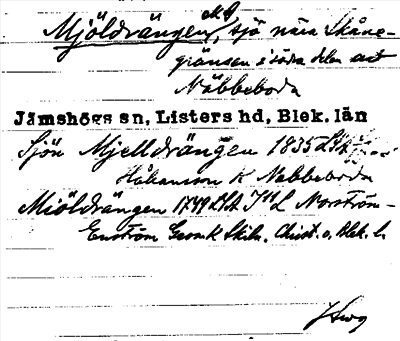 Mjöldrängen, sjö nära Skåne-
gränsen i södra delen av
Näbbeboda
Jämshögs sn, Listers hd, Blek. län
Sjön Mjelldrängen 1835
Håkanson K Nabbeboda
Miöldrängen 1749 Norström-
Enström Geom.k Skik. Christ. o. Blek. l.